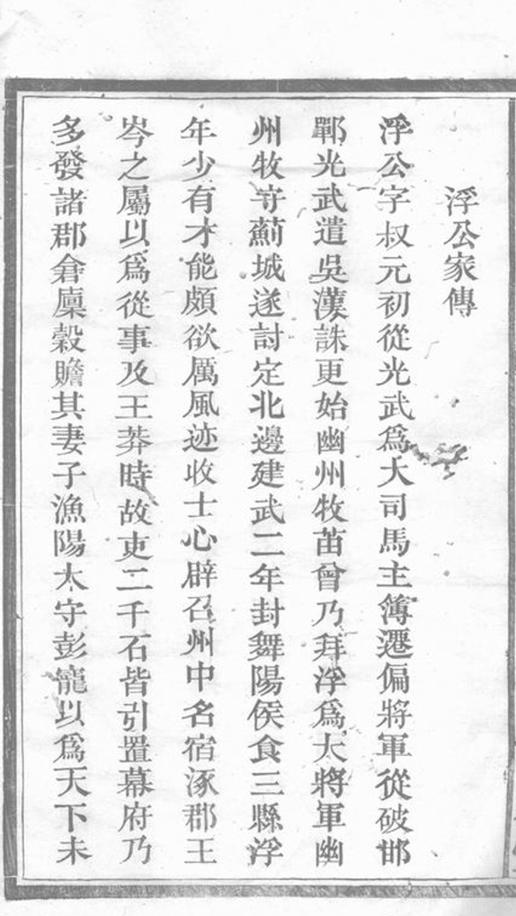 浮公家傳
浮公字叔元初從光武爲大司馬主簿遷偏將軍從破邯
鄲光武遣吳漢誅更始幽州牧苗曾乃拜浮爲大將軍幽
州牧守薊城遂討定北邊建武二年封舞陽侯食三縣浮
年少有才能頗欲厲風迹收士心辟召州中名宿涿郡王
岑之屬以爲從事及王莽時故吏二千石皆引置幕府乃
多發諸郡倉廩穀贍其妻子漁陽太守彭寵以爲天下未